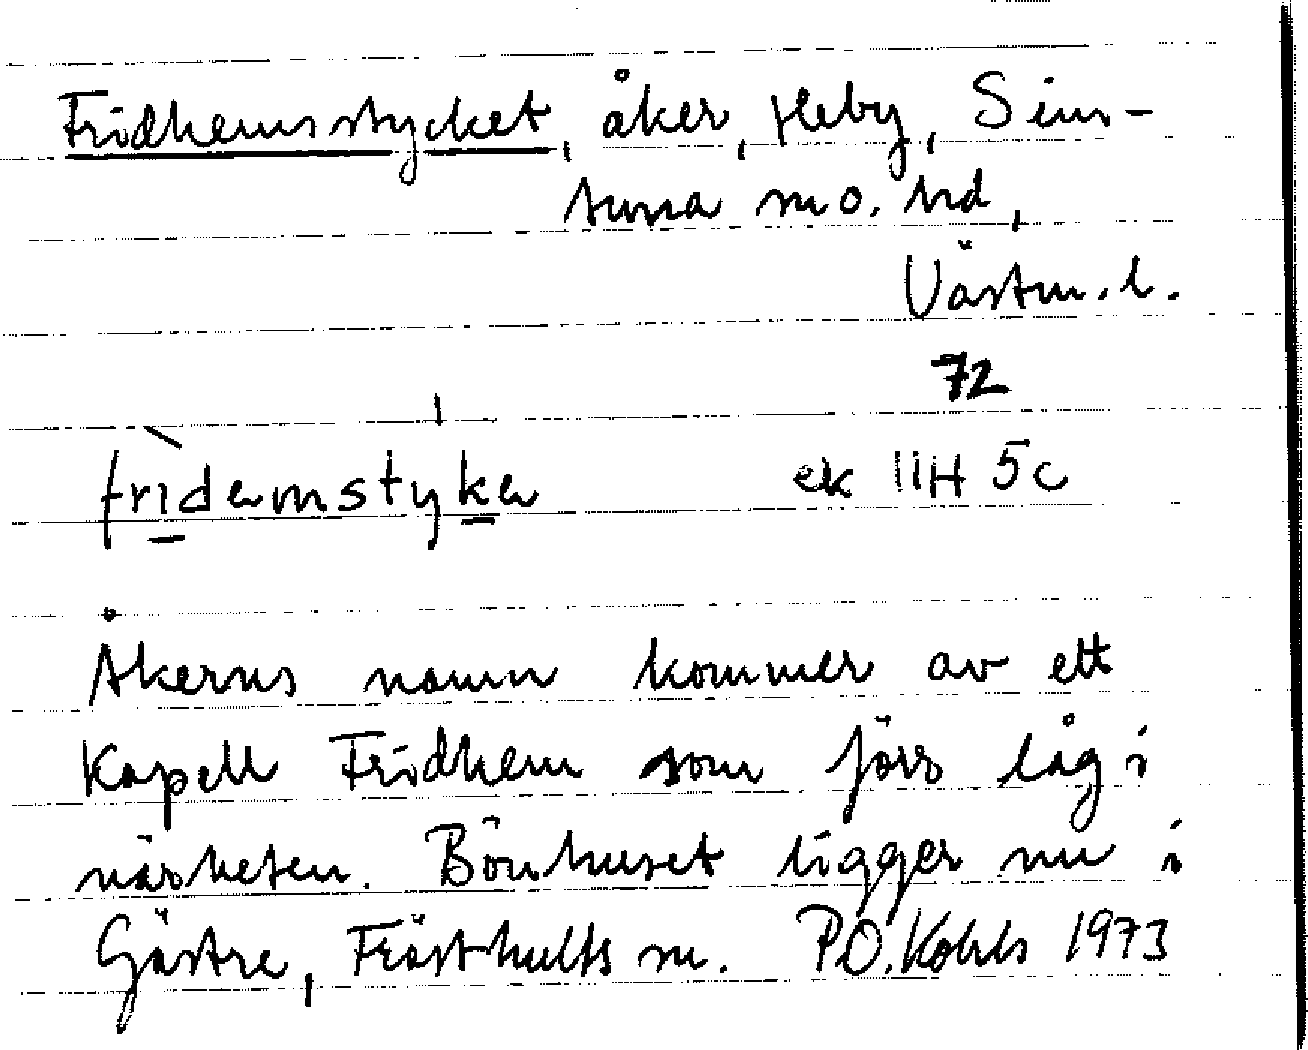 Fridhemsstycket, åker, Heby, Sim-
tuna sn o. hd,
Västm. l.
72
fridemstyker
ek 11H 5c
Åkerns namn kommer av ett
kapell Fridhem som förr låg i
närheten. Bönhuset ligger nu i
Gästre, Frösthults sn. P.O. Kohls 1973